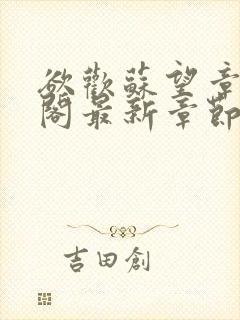 欲歡蘇望章
閣最新章節
吉田創